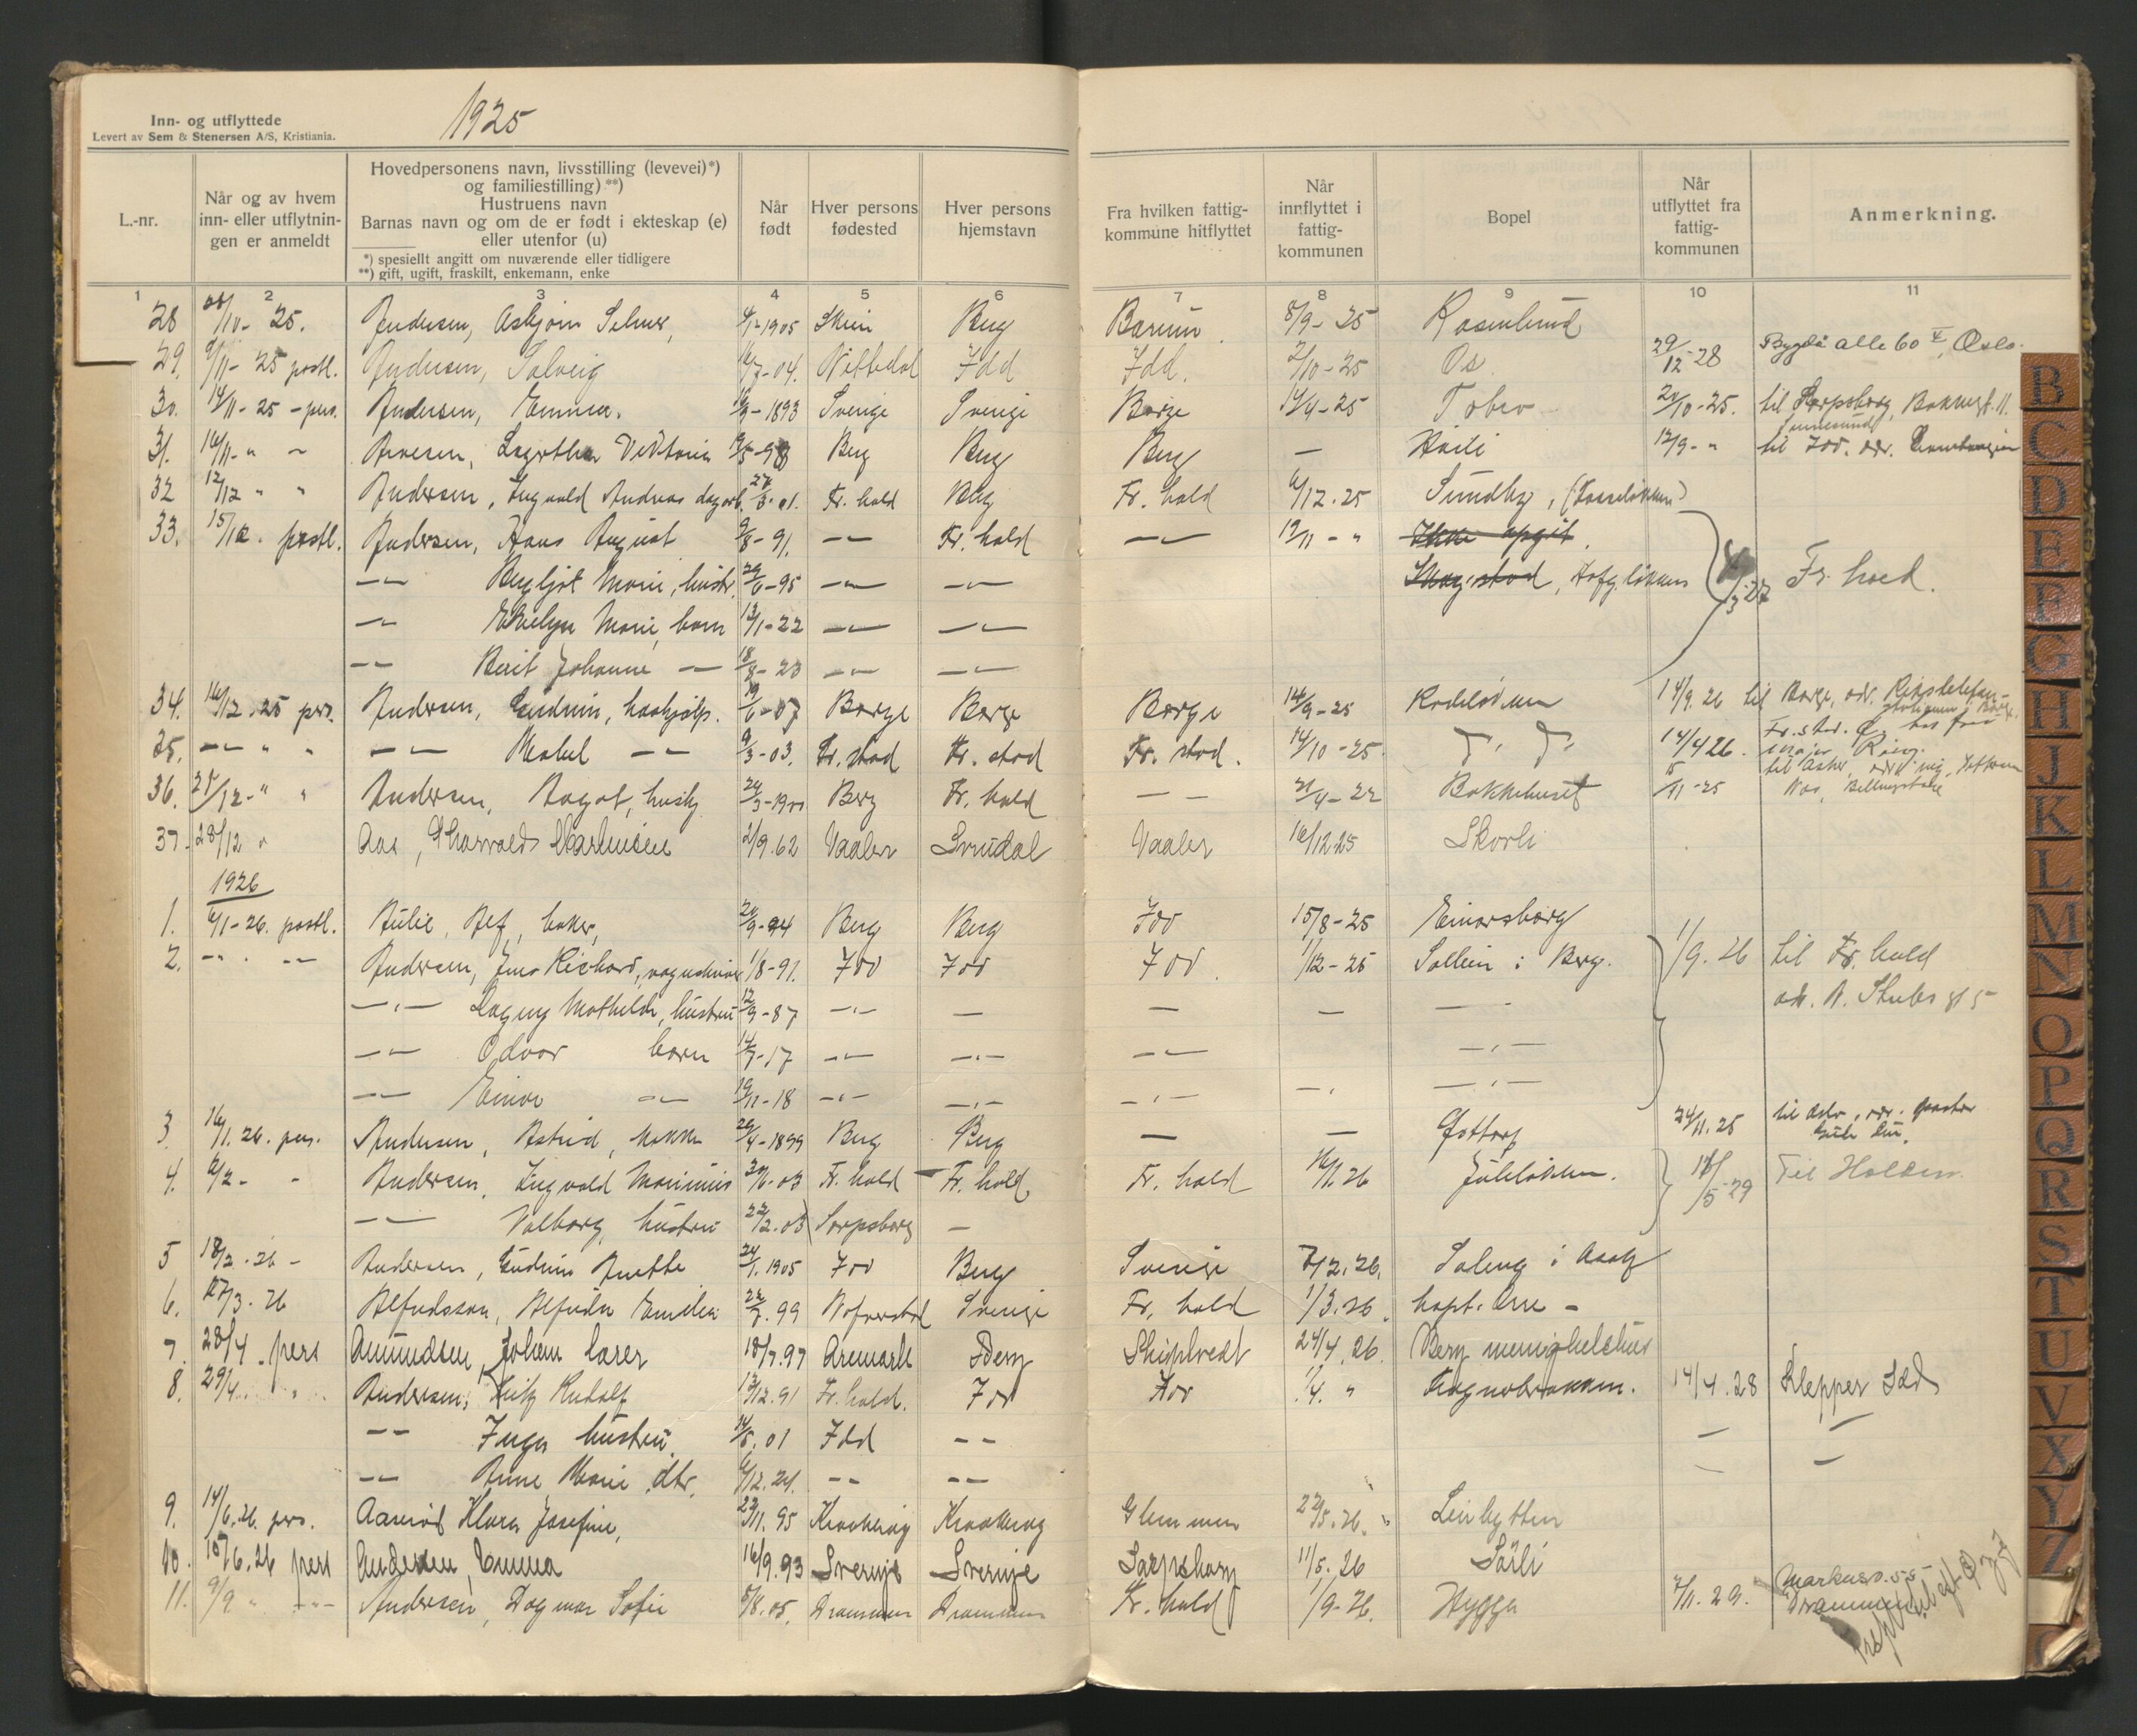 Inn- og utflyttede
Levert av Sem & Stenersen A/S, Kristiania.
1925
L.-nr.
Når og av hvem inn- eller utflytnin- gen er anmeldt
Hovedpersonens navn, livsstilling (levevei)*) og familiestilling) **) Hustruens navn Barnas navn og om de er født i ekteskap (e) eller utenfor (u)
*) spesiellt angitt om nuværende eller tidligere
**) gift, ugift, fraskilt, enkemann, enke
Når født
Hver persons fødested
Hver persons hjemstavn
Fra hvilken fattig- kommune hitflyttet
Når innflyttet i fattig- kommunen
Bopel
Når utflyttet fra fattig- kommunen
Anmerkning.
1 2 3 4 5 6 7 8 9 10 11
28 /10- 25. Andersen, Asbjørn Selmer, 4/1-1905 Skien Berg Bærum 8/9-25 Rosenlund
29. 9/11-25 postl. Andersen, Solveig 16/7-04. Nittedal Idd Idd. 2/10-25 Os 29/12-28 Bygdø alle 60 V, Oslo.
30. 14/11-25 - pers. Andersen, Emma. 16/9-1893 Sverige Sverige Borge 14/4-25 Torbro 20/10-25. til Sarpsborg,
31. 16/11-" - Arvesen, Lagertha Viktoria 19/5-98 Berg Berg Berg — 12/9-" til Idd. adr.
32 12/12 " " Andersen, Ingvald Andreas dagarb. 27/3.01. Fr. hald Berg Fr. hald 6/12.25 Sundby,
33. 15/12. postl. Andersen, Hans August 9/8-91. -"- Fr. hald -"- 12/11-" Ikke opgit.
-"- Bergljot Marie, hustr. 29/6-95 -"- -"- Fr. hald.
-"- Evelyn Marie, barn 13/11-22 -"- -"-
-"- Berit Johanne -"- 18/8-23 -"- -"-
34. 16/12.25 pers. Andersen, Gudrun, hushjælp. 19/6-07 Borge Borge Borge 14/9-25 14/9.26 til Borge, adr. Rikstelefon-
35. -"- " " -"- Mabel -"- 9/3-03. Fr. stad Fr. stad Fr. stad. 14/10-25. 14/4 26. Fr. stad. major Ring.
36. 28/12-" " Andersen, Aagot, hushj. 20/3-1900 Berg Fr. hald - - 21/4-22 Bakkehuset 15/11-25 til Asker,
37. 28/12 " Aas, Tharvald Martinsen 2/9.62 Vaaler Svindal Vaaler 16/12 25 Skorli
1926
1. 6/1-26. postl. Aulie, Alf, baker, 20/9-94 Berg Berg Idd 15/8-25 Einarsborg
2. -"- -"- Andersen, Jens Richard, 1/8-91. Idd Idd Idd. 1/12-25 Solli i Berg. 1/9.26 til Fr. hald
-"- Dagny Mathilde, hustru 12/9-87 -"- — — — — adr. A. Stubs gt 5
-"- Odvar barn 14/7-17 -"- -"- -"- -"-
-"- Einar -"- 19/11-18 -"- -"- -"- -"- -"-
3. 16/1.26. pers. Andersen, Astrid, kokke 20/4-1899 Berg Berg — — 24/11.25 til Oslo, adr.
4. 6/2- - Andersen, Ingvald Marinius 30/6-03 Fr. hald Fr. hald Fr. hald 16/1.26 Juleløkken. 18/5-29 Til Halden
-"- Valborg hustru 22/2.03 Sarpsborg —
5 18/2.26 - Andersen, Gudrun Anette 24/1.1905 Idd Berg Sverige 7/2.26. Soleng i Asak
6. 27/3.26 Alfredsson, Alfrida Emilia 22/7.99 Sverige Fr. hald 1/3.26.
7. 28/4. pers Amundsen, Johan Larer 18/7.97 Aremark Idem Skiptvedt 24/4.26. Berg menighetshus
8. 29/4. " Andersen, Fritz Rudolf 13/12.91 Fr. hald. Idd Idd 1/4. " 14/4.28 Klepper Idd
-"- Inga hustru. 14/5.01 Idd -- — —
-"- Anne Marie, dtr. 6/12.24. -- -- — —
9. 14/6.26. pers. Aaserød Klara Josefine, 23/11.95 Kraakerøy Kraakerøy Glemmen 22/5.26. " Leirhytten
10. 15/6.26 pers Andersen, Emma 16/9.93 Sverige Sverige Sarpsborg 11/5.26 Sørli
11. 9/9. " -"- Andersen, Dagmar Sofie 5/8.05. Drammen Drammen Fr. hald 1/9-26. Hygga 7/11.29. Drammen
B
C
D
E
F
G
H
J
K
L
M
N
O
P
Q
R
S
T
U
V
X
Y
Z